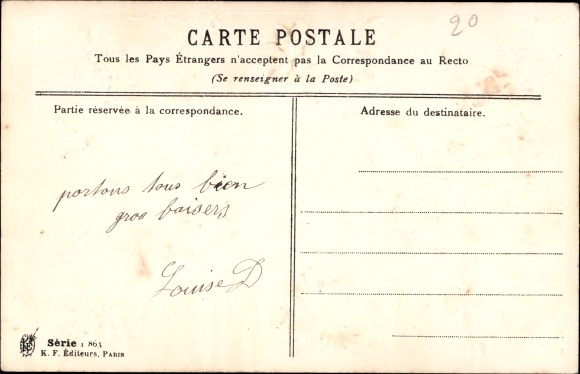 20
CARTE POSTALE
Tous les Pays Étrangers n'acceptent pas la Correspondance au Recto
(Se renseigner à la Poste)
Partie réservée à la correspondance.
Adresse du destinataire.
portons tous bien
gros baisers
Louise D
Série 1 863
K. F. Éditeurs, PARIS